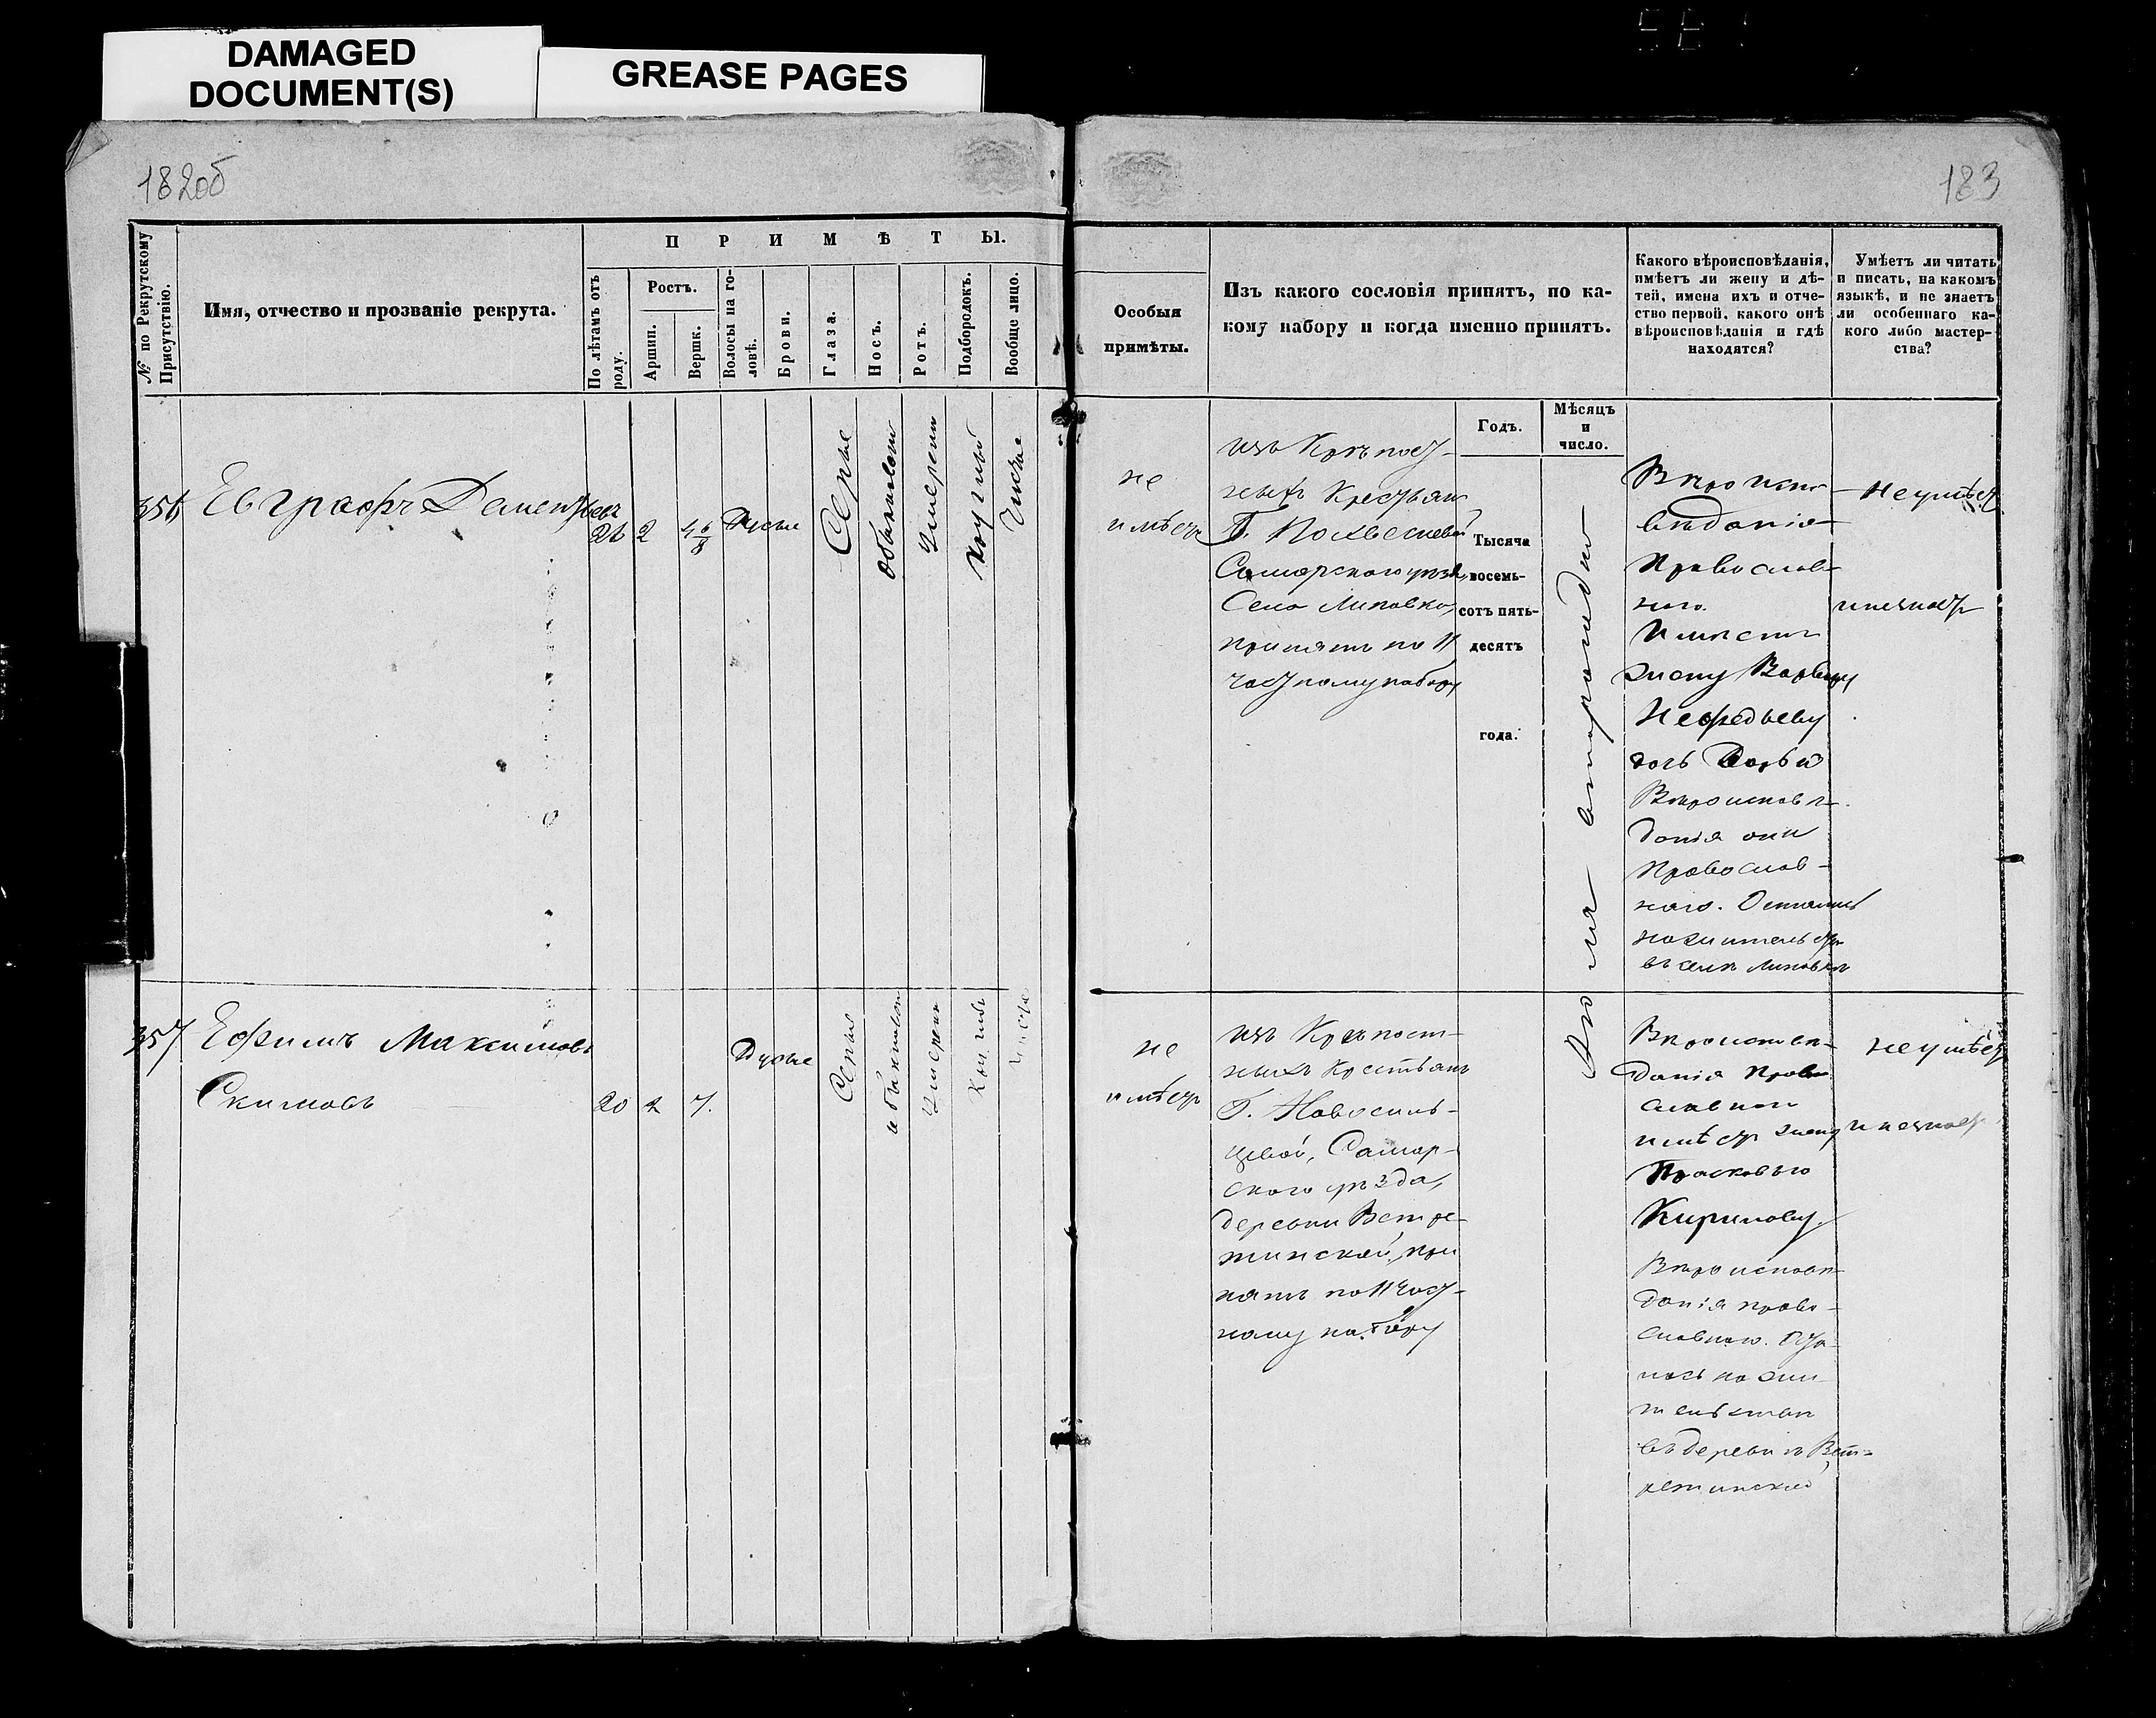 DAMAGED
DOCUMENT(S)
GREASE PAGES
182об
183
№ по Рекрутскому
Присутствію.
Имя, отчество и прозваніе рекрута.
ПРИМѢТЫ.
По лѣтамъ отъ
роду.
Ростъ.
Аршин.
Вершк.
Волосы на го-
ловѣ.
Брови.
Глаза.
Носъ.
Ротъ.
Подбородокъ.
Вообще лицо.
Особыя
примѣты.
Изъ какого сословія принятъ, по ка-
кому набору и когда именно принятъ.
Какого вѣроисповѣданія,
имѣетъ ли жену и дѣ-
тей, имена ихъ и отче-
ство первой, какого онѣ
вѣроисповѣданія и гдѣ
находятся?
Умѣетъ ли читать
и писать, на какомъ
языкѣ, и не знаетъ
ли особеннаго ка-
кого либо мастер-
ства?
Годъ.
Мѣсяцъ
и
число.
356
Евграфъ Дементьевъ
2
4 6/8
Русые
Серые
обыкновен
умерен
круглый
Чистое
не
имѣетъ
изъ Крѣпост-
ныхъ Крестьянъ
Г.
Самарского уѣзда,
Села Липовки,
принятъ по 11
частному набору
Тысяча
восемь-
сотъ пять-
десятъ
года.
втораго
Вѣроиспо-
вѣданія
Православ-
наго.
Имѣетъ
жену Варвару
Нефедьеву
дочь
Вѣроисповѣ-
данія они
Православ-
наго. Остались
на жительстве
въ селѣ Липовкѣ
не умѣетъ
и незнаетъ
357
Ефимъ Максимовъ
20 2 7.
Русые
Серые
обыкновен
умерен
Круглый
чистое
не
имѣетъ
изъ Крѣпост-
ныхъ Крестьянъ
Г. Новосиль-
цевой, Самар-
ского уѣзда,
деревни
при
нятъ по 11 част-
ному набору
Вѣроисповѣ-
данія Право
славнаго
имѣетъ жену
Прасковью
Кирилову.
Вѣроисповѣ-
данія право-
славнаго. Оста-
лась на жи
тельстве
въ деревнѣ
не умѣетъ
и незнаетъ